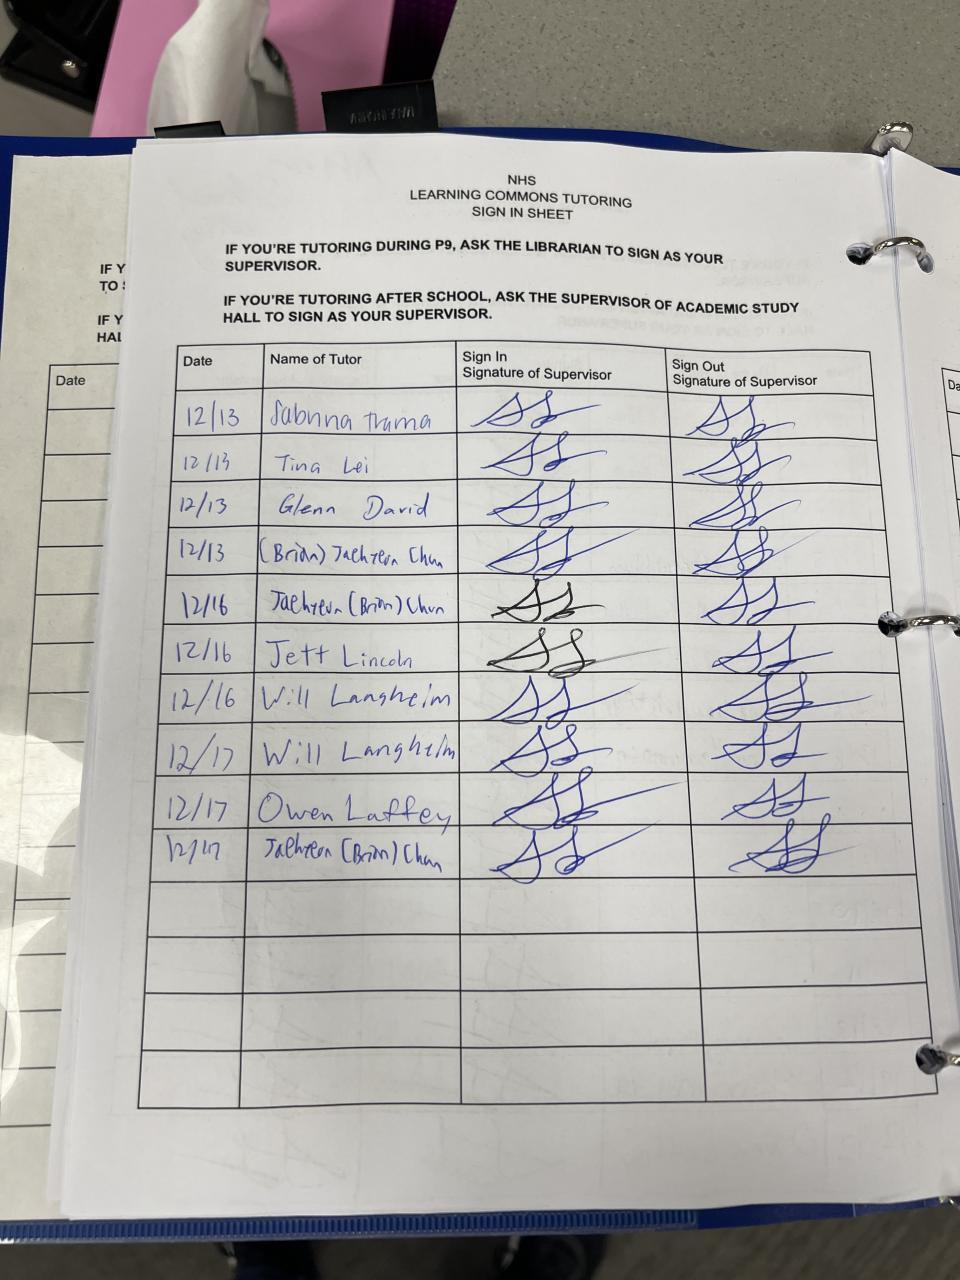 NHS
LEARNING COMMONS TUTORING
SIGN IN SHEET
IF YOU'RE TUTORING DURING P9, ASK THE LIBRARIAN TO SIGN AS YOUR
SUPERVISOR.
IF YOU'RE TUTORING AFTER SCHOOL, ASK THE SUPERVISOR OF ACADEMIC STUDY
HALL TO SIGN AS YOUR SUPERVISOR.
Date Name of Tutor Sign In Signature of Supervisor Sign Out Signature of Supervisor
12/13 Sabrina Trama
12/13 Tina Lei
12/13 Glenn David
12/13 (Brian) Jaehyeon Chun
12/16 Jaehyeon (Brian) Chun
12/16 Jett Lincoln
12/16 Will Langheim
12/17 Will Langheim
12/17 Owen Laffey
12/17 Jaehyeon (Brian) Chun
IF Y
TO
IF Y
HAL
Date
Da